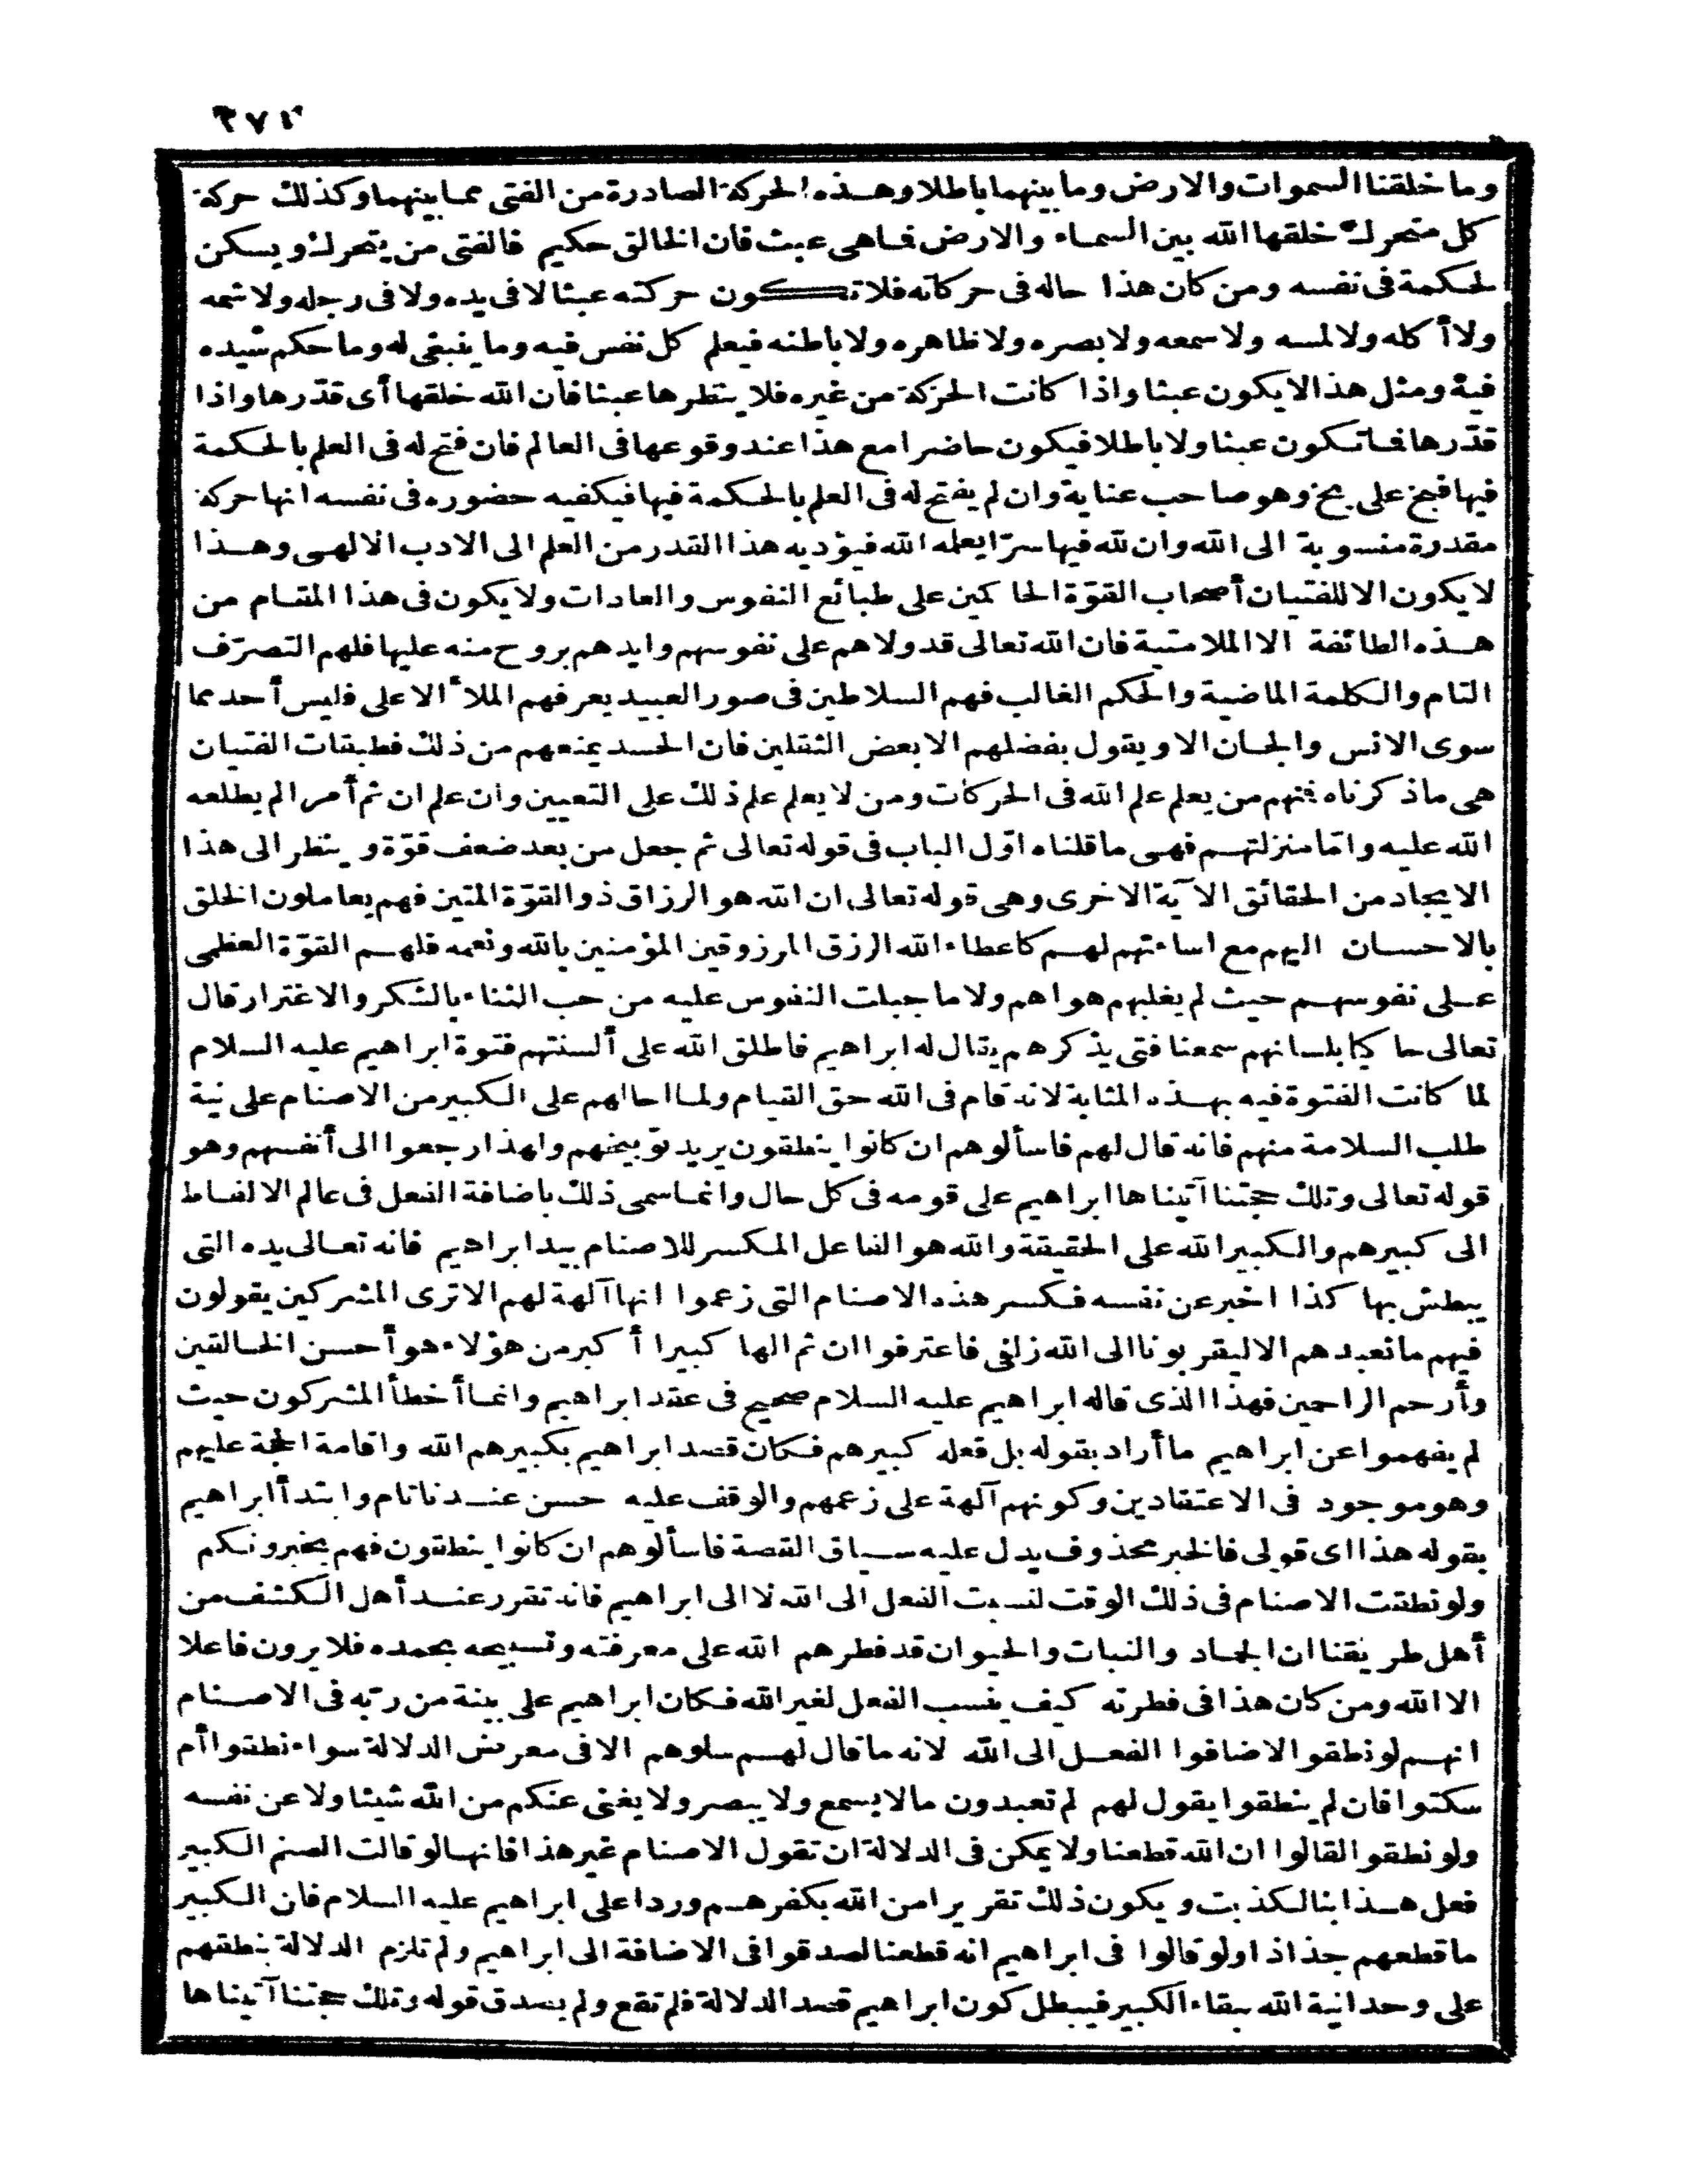 ٢٧٢
وما خلقنا السموات والارض وما بينهما باطلا وهذه الحركة الصادرة من الفتى مما بينهما وكذلك حركة
كل متحرك خلقها الله بين السماء والارض فما هى عبث فان الخالق حكيم فالفتى من يتحرك ويسكن
لحكمة فى نفسه ومن كان هذا حاله فى حركاته فلا تكون حركته عبثا لا فى يده ولا فى رجله ولا شمه
ولا أكله ولا لمسه ولا سمعه ولا بصره ولا ظاهره ولا باطنه فيعلم كل نفس فيه وما ينبغى له وما حكم سيده
فيه ومثل هذا لا يكون عبثا واذا كانت الحركة من غيره فلا ينظرها عبثا فان الله خلقها أى قدّرها واذا
قدّرها فما تكون عبثا ولا باطلا فيكون حاضرا مع هذا عند وقوعها فى العالم فان فتح له فى العلم بالحكمة
فيها فبخ على بخ وهو صاحب عناية وان لم يفتح له فى العلم بالحكمة فيها فيكفيه حضوره فى نفسه انها حركة
مقدرة منسوبة الى الله وان لله فيها سرّا يعلمه الله فيؤديه هذا القدر من العلم الى الادب الالهى وهذا
لا يكون الا للفتيان أصحاب القوّة الحاكمين على طبائع النفوس والعادات ولا يكون فى هذا المقام من
هذه الطائفة الا الملامتية فان الله تعالى قد ولاهم على نفوسهم وايدهم بروح منه عليها فلهم التصرّف
التام والكلمة الماضية والحكم الغالب فهم السلاطين فى صور العبيد يعرفهم الملأ الاعلى فليس أحد مما
سوى الانس والجان الا ويقول بفضلهم الا بعض الثقلين فان الحسد يمنعهم من ذلك فطبقات الفتيان
هى ماذكرناه فمنهم من يعلم علم الله فى الحركات ومن لا يعلم علم ذلك على التعيين وان علم ان ثم أمرا لم يطلعه
الله عليه وامّا منزلتهم فهى ما قلناه اوّل الباب فى قوله تعالى ثم جعل من بعد ضعف قوّة وينظر الى هذا
الايجاد من الحقائق الآية الاخرى وهى قوله تعالى ان الله هو الرزاق ذو القوّة المتين فهم يعاملون الخلق
بالاحسان اليهم مع اساءتهم لهم كاعطاء الله الرزق المرزوقين المؤمنين بالله ونعمه فلهم القوّة العظمى
على نفوسهم حيث لم يغلبهم هواهم ولا ما جبلت النفوس عليه من حب الثناء بالشكر والاغترار قال
تعالى حاكيا بلسانهم سمعنا فتى يذكرهم يقال له ابراهيم فاطلق الله على ألسنتهم فتوة ابراهيم عليه السلام
لما كانت الفتوة فيه بهذه المثابة لانه قام فى الله حق القيام ولما احالهم على الكبير من الاصنام على نية
طلب السلامة منهم فانه قال لهم فاسألوهم ان كانوا ينطقون يريد توبيخهم ولهذا رجعوا الى أنفسهم وهو
قوله تعالى وتلك حجتنا آتيناها ابراهيم على قومه فى كل حال وانما سمى ذلك باضافة الفعل فى عالم الالفاظ
الى كبيرهم والكبير الله على الحقيقة والله هو الفاعل المكسر للاصنام بيد ابراهيم فانه تعالى يده التى
يبطش بها كذا اخبر عن نفسه فكسر هذه الاصنام التى زعموا انها آلهة لهم الا ترى المشركين يقولون
فيهم ما نعبدهم الا ليقربونا الى الله زلفى فاعترفوا ان ثم الها كبيرا أكبر من هؤلاء هو أحسن الخالقين
وأرحم الراحمين فهذا الذى قاله ابراهيم عليه السلام صحيح فى عقد ابراهيم وانما أخطأ المشركون حيث
لم يفهموا عن ابراهيم ما أراد بقوله بل فعله كبيرهم فكان قصد ابراهيم بكبيرهم الله واقامة الحجة عليهم
وهو موجود فى الاعتقادين وكونهم آلهة على زعمهم والوقف عليه حسن عندنا تام وابتدأ ابراهيم
بقوله هذا اى قولى فالخبر محذوف يدل عليه سياق القصة فاسألوهم ان كانوا ينطقون فهم يخبرونكم
ولو نطقت الاصنام فى ذلك الوقت لنسبت الفعل الى الله لا الى ابراهيم فانه تقرر عند أهل الكشف من
أهل طريقنا ان الجماد والنبات والحيوان قد فطرهم الله على معرفته وتسبيحه بحمده فلا يرون فاعلا
الا الله ومن كان هذا فى فطرته كيف ينسب الفعل لغير الله فكان ابراهيم على بينة من ربّه فى الاصنام
انهم لو نطقوا لاضافوا الفعل الى الله لانه ما قال لهم سلوهم الا فى معرض الدلالة سواء نطقوا أم
سكتوا فان لم ينطقوا يقول لهم لم تعبدون مالا يسمع ولا يبصر ولا يغنى عنكم من الله شيئا ولا عن نفسه
ولو نطقوا لقالوا ان الله قطعنا ولا يمكن فى الدلالة ان تقول الاصنام غير هذا فانها لو قالت الصنم الكبير
فعل هذا بنا لكذبت ويكون ذلك تقريرا من الله بكفرهم وردا على ابراهيم عليه السلام فان الكبير
ما قطعهم جذاذا ولو قالوا فى ابراهيم انه قطعنا لصدقوا فى الاضافة الى ابراهيم ولم تلزم الدلالة بنطقهم
على وحدانية الله ببقاء الكبير فيبطل كون ابراهيم قصد الدلالة فلم تقع ولم يصدق قوله وتلك حجتنا آتيناها